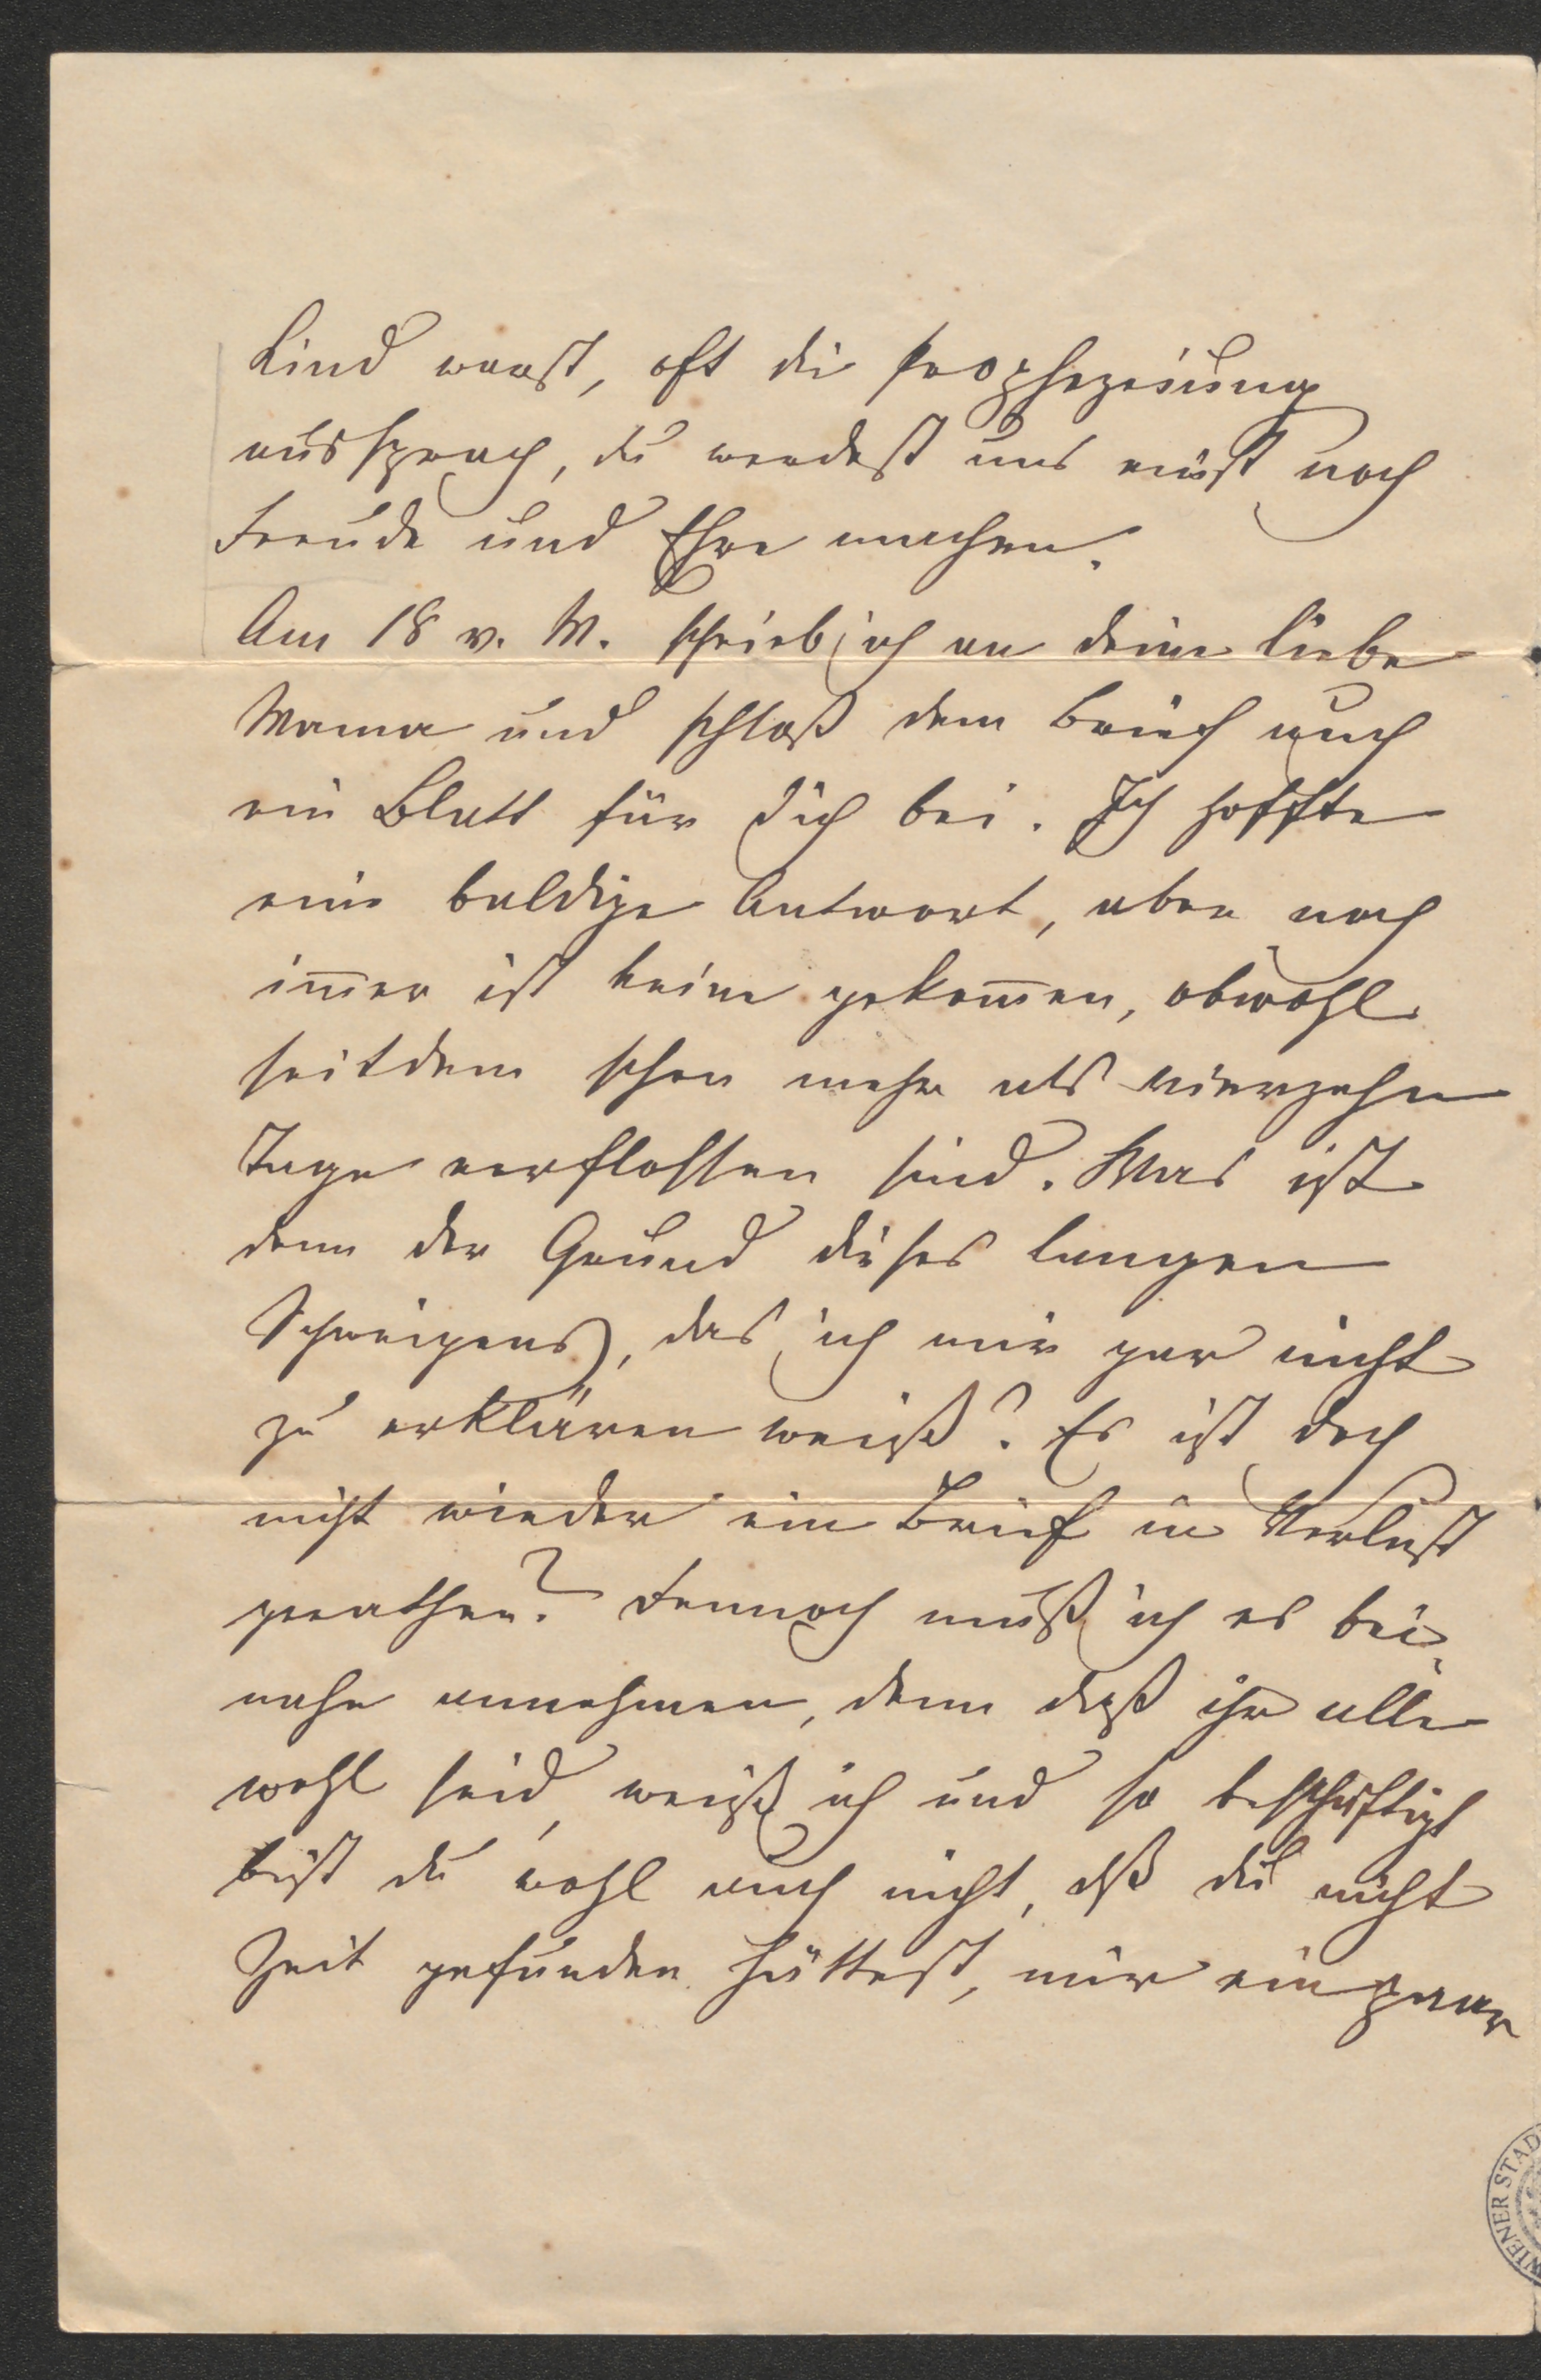 Kind warst, oft die Prophezeiung
aussprach, du werdest uns einst noch
Freude und Ehre machen.
Am 18 v. M. schrieb ich an deine liebe
Mama und schloß dem Brief auch
ein Blatt für dich bei. Ich hoffte
eine baldige Antwort, aber noch
im̄er ist keine gekom̄en, obwohl
seitdem schon mehr als vierzehn
Tage verflossen sind. Was ist
denn der Grund dieses langen
Schweigens, das ich mir gar nicht
zu erklären weiß? Es ist doch
nicht wieder ein Brief in Verlust
gerathen? Dennoch muß ich es bei-
nahe annehmen, denn daß ihr alle
wohl seid, weiß ich und so beschäftigt
bist du wohl auch nicht, dß du nicht
Zeit gefunden hättest, mir ein paar
WIENER STAD